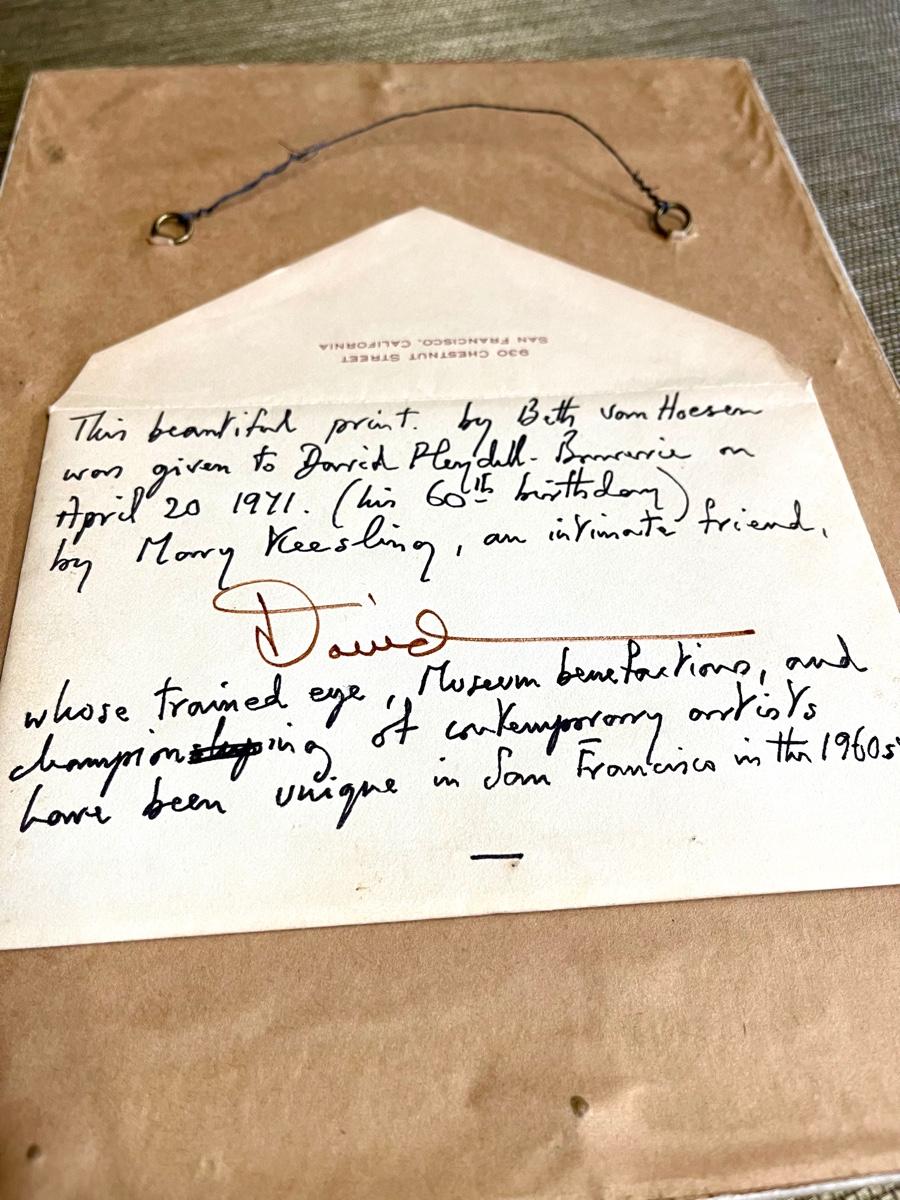 930 CHESTNUT STREET
SAN FRANCISCO, CALIFORNIA
This beautiful print. by Beth van Hoesen
was given to David Pleydell-Bouverie on
April 20 1971. (his 60th birthday)
by Mary Keesling, an intimate friend,
David
whose trained eye, Museum benefactions, and
championing of contemporary artists
have been unique in San Francisco in the 1960s